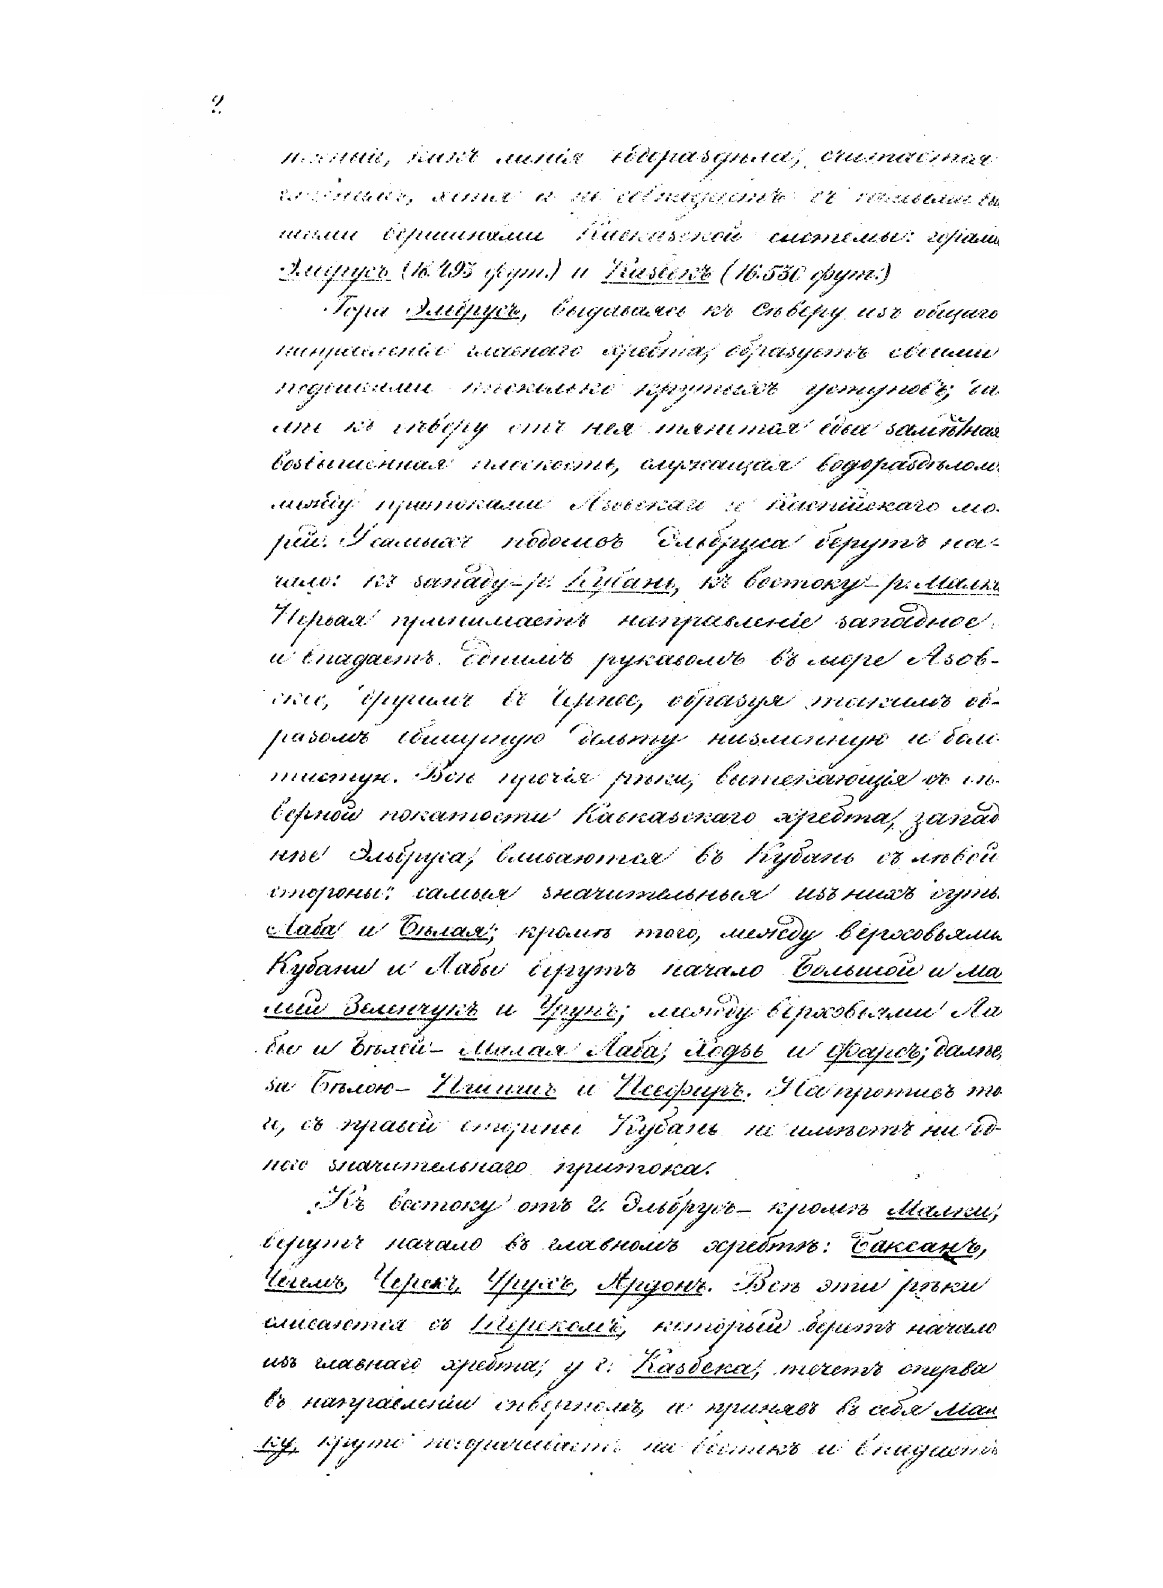 2.
южный, какъ линія водораздѣла, считается
главнымъ, хотя и не совпадаетъ съ самыми вы
шими вершинами Кавказской системы: горами
Эльбрусъ (18.493 фут.) и Казбекъ (16.530 фут.)
Гора Эльбрусъ, выдаваясь къ Сѣверу изъ общаго
направленія главнаго хребта, образуетъ своими
подошвами нѣсколько крутыхъ уступовъ; да
лѣе къ сѣверу отъ нея тянется едва замѣтная
возвышенная плоскость, служащая водораздѣломъ
между притоками Азовскаго и Каспійскаго мо-
рей. У самыхъ подошвъ Эльбруса берутъ на-
чало: къ западу – р. Кубань, къ востоку – р. Малка.
Первая принимаетъ направленіе западное
и впадаетъ однимъ рукавомъ въ море Азов-
ское, другимъ въ Черное, образуя такимъ об-
разомъ обширную дельту низменную и боло-
тистую. Всѣ прочія рѣки, вытекающія съ сѣ-
верной покатости Кавказскаго хребта, запад
нѣе Эльбруса, вливаются въ Кубань съ лѣвой
стороны: самыя значительныя изъ нихъ суть:
Лаба и Бѣлая; кромѣ того, между верховьями
Кубани и Лабы берутъ начало Большой и Ма
лый Зеленчукъ и Урупъ; между верховьями Ла
бы и Бѣлой – Малая Лаба, Ходзь и Фарсъ; далѣе,
за Бѣлою – Пшишъ и Псефиръ. Напротивъ то
го, съ правой стороны Кубань не имѣетъ ни од-
ного значительнаго притока.
Къ востоку отъ г. Эльбрусъ – кромѣ Малки,
берутъ начало въ главномъ хребтѣ: Баксанъ,
Чегемъ, Черекъ, Урухъ, Ардонъ. Всѣ эти рѣки
сливаются съ Терекомъ, который беретъ начало
изъ главнаго хребта, у г. Казбека, течетъ сперва
въ направленіи сѣверномъ, и принявъ въ себя Мал
ку, круто поворачиваетъ на востокъ и впадаетъ